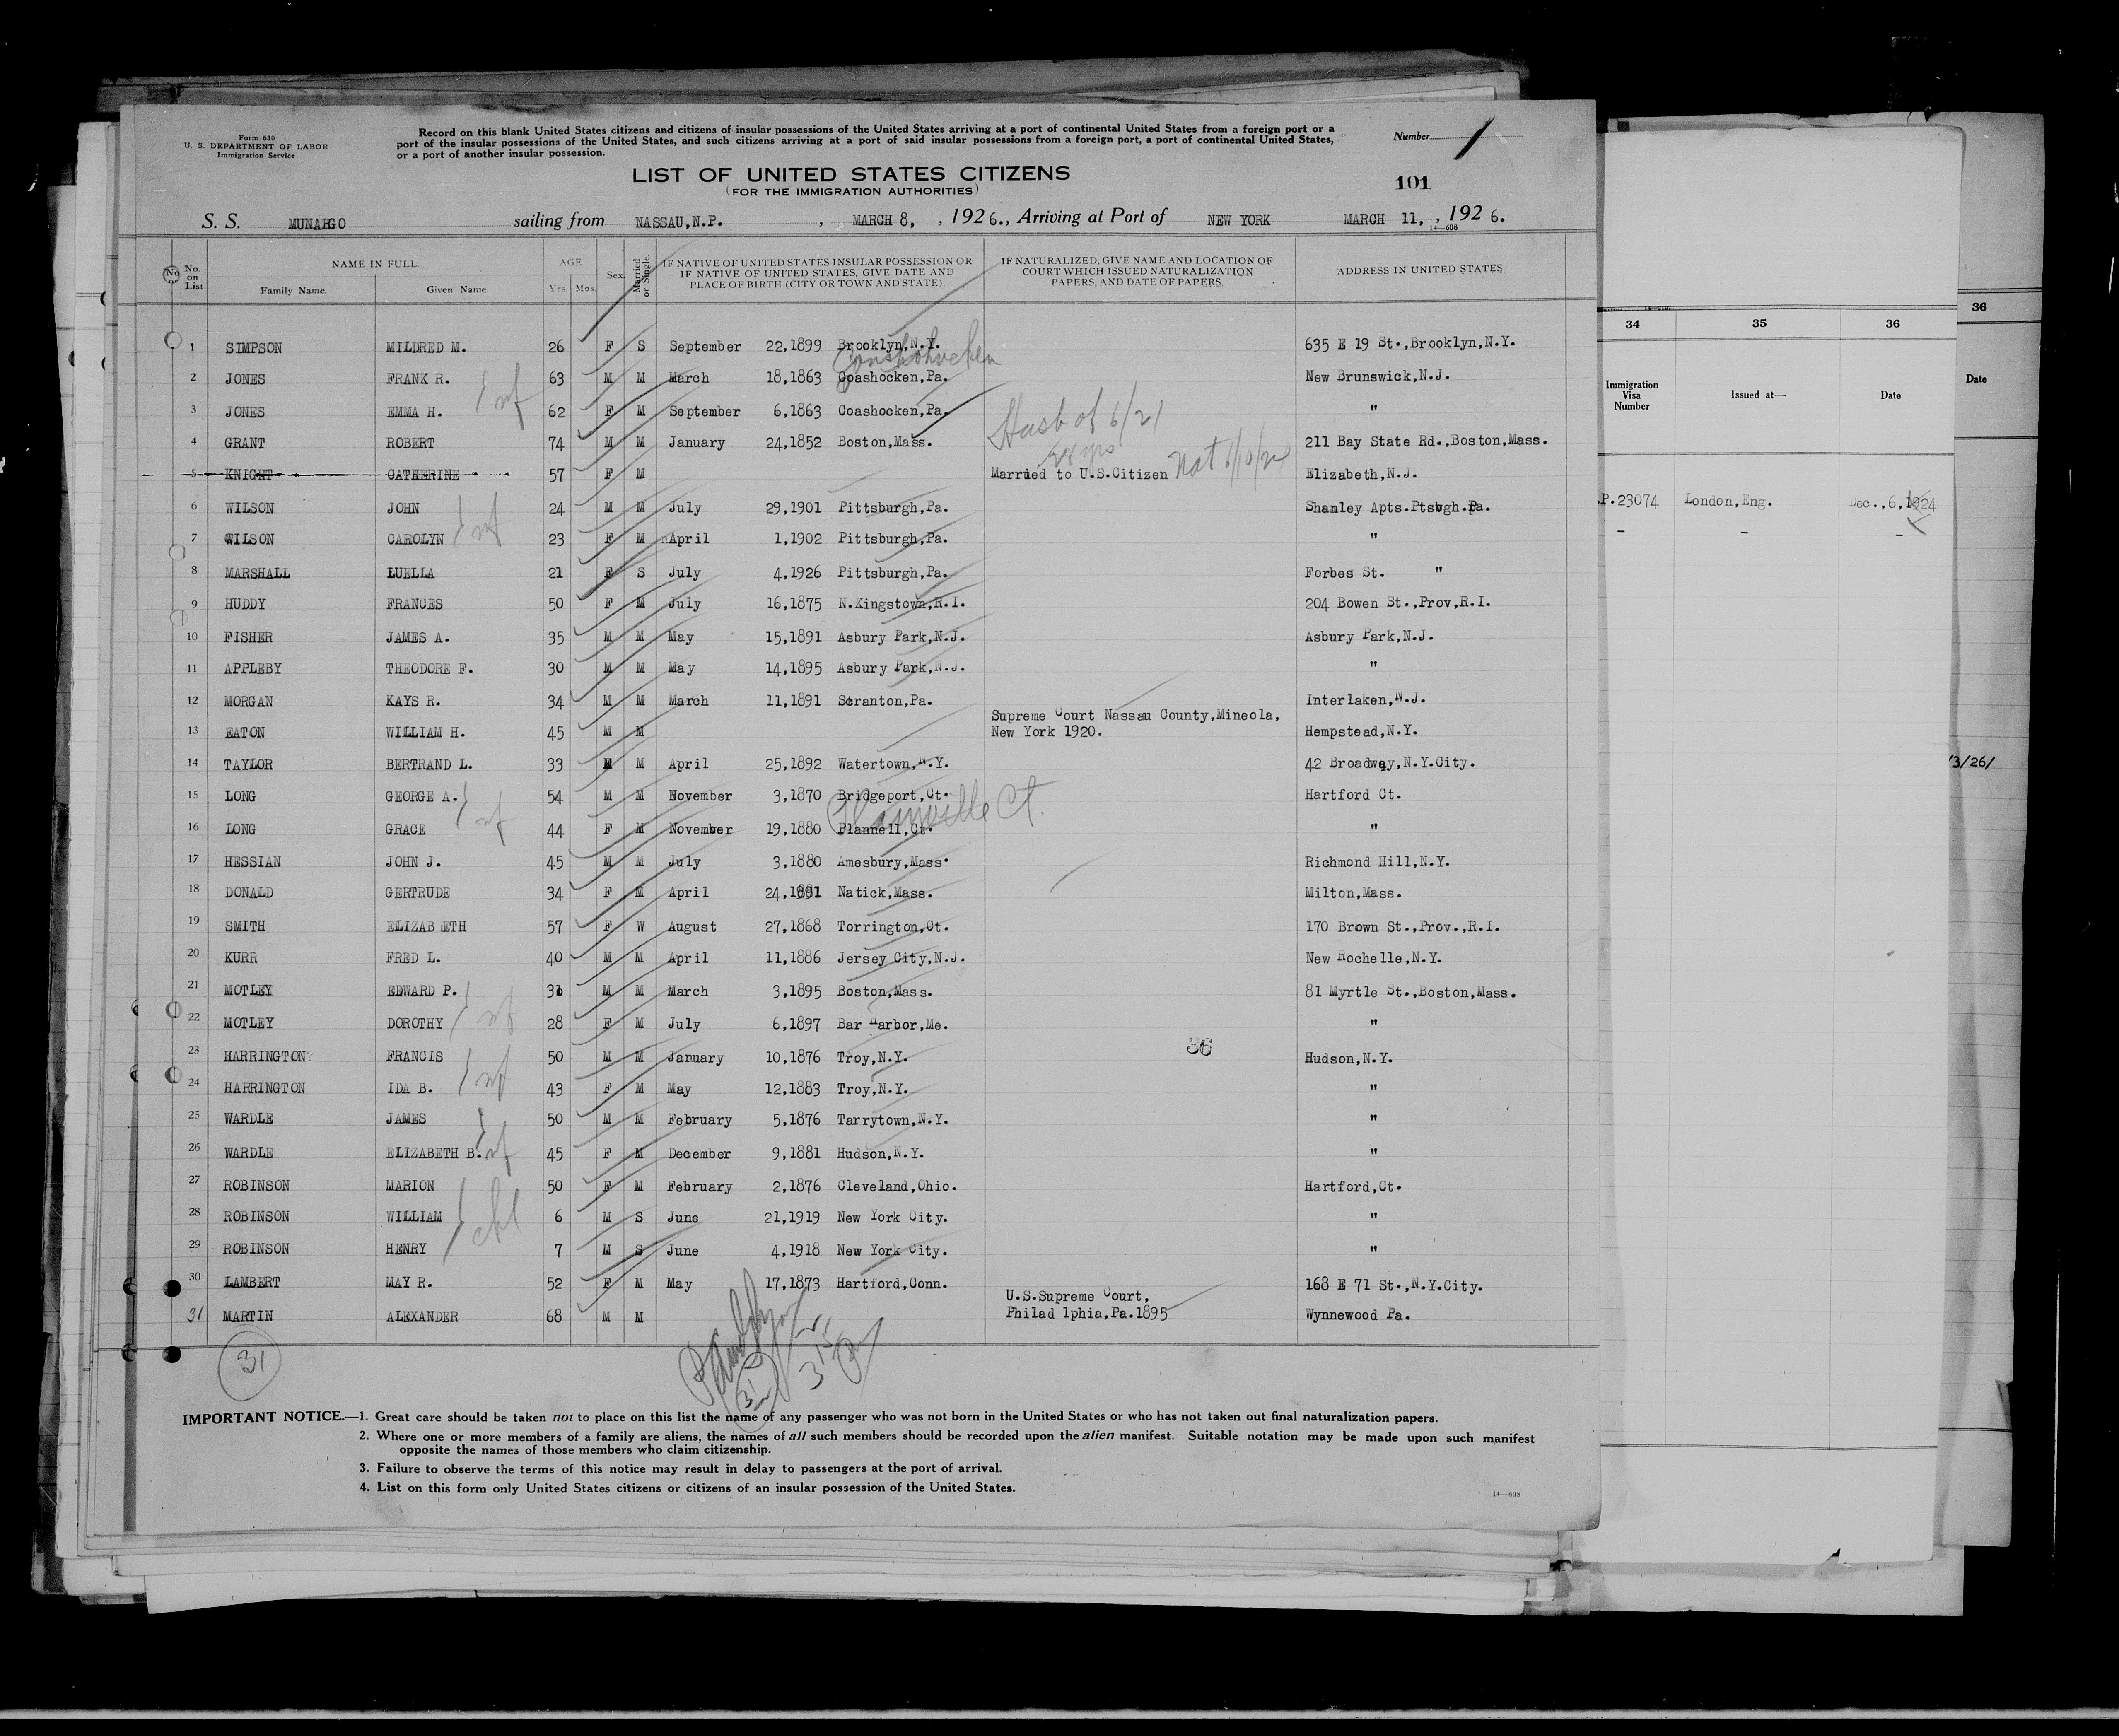 Form 630
U. S. DEPARTMENT OF LABOR
Immigration Service
Record on this blank United States citizens and citizens of insular possessions of the United States arriving at a port of continental United States from a foreign port or a
port of the insular possessions of the United States, and such citizens arriving at a port of said insular possessions from a foreign port, a port of continental United States,
or a port of another insular possession.
Number 1
LIST OF UNITED STATES CITIZENS
(FOR THE IMMIGRATION AUTHORITIES)
101
S. S. MUNARGO sailing from NASSAU,N.P. , MARCH 8, , 1926., Arriving at Port of NEW YORK MARCH 11, , 1926.
14—608
No. No. on List. NAME IN FULL Family Name. Given Name. AGE Yrs. Mos. Sex. Married or Single. IF NATIVE OF UNITED STATES INSULAR POSSESSION OR IF NATIVE OF UNITED STATES, GIVE DATE AND PLACE OF BIRTH (CITY OR TOWN AND STATE). IF NATURALIZED, GIVE NAME AND LOCATION OF COURT WHICH ISSUED NATURALIZATION PAPERS, AND DATE OF PAPERS. ADDRESS IN UNITED STATES.
1 SIMPSON MILDRED M. 26 F S September 22,1899 Brooklyn,N.Y. 635 E 19 St.,Brooklyn,N.Y.
Conshohocken
2 JONES FRANK R. 63 M M March 18,1863 Coashocken,Pa. New Brunswick,N.J.
wf
3 JONES EMMA H. 62 F M September 6,1863 Coashocken,Pa. "
Husb of 6/21
4 GRANT ROBERT 74 M M January 24,1852 Boston,Mass. 211 Bay State Rd.,Boston,Mass.
28 yrs
5 KNIGHT CATHERINE 57 F M Married to U.S.Citizen Nat Elizabeth,N.J.
6 WILSON JOHN 24 M M July 29,1901 Pittsburgh,Pa. Shanley Apts.Ptsbgh.Pa.
wf
7 WILSON CAROLYN 23 F M April 1,1902 Pittsburgh,Pa. "
8 MARSHALL LUELLA 21 F S July 4,1926 Pittsburgh,Pa. Forbes St. "
9 HUDDY FRANCES 50 F M July 16,1875 N.Kingstown,R.I. 204 Bowen St.,Prov,R.I.
10 FISHER JAMES A. 35 M M May 15,1891 Asbury Park,N.J. Asbury Park,N.J.
11 APPLEBY THEODORE F. 30 M M May 14,1895 Asbury Park,N.J. "
12 MORGAN KAYS R. 34 M M March 11,1891 Scranton,Pa. Interlaken,N.J.
Supreme Court Nassau County,Mineola,
13 EATON WILLIAM H. 45 M M New York 1920. Hempstead,N.Y.
14 TAYLOR BERTRAND L. 33 M M April 25,1892 Watertown,N.Y. 42 Broadway,N.Y.City.
15 LONG GEORGE A. 54 M M November 3,1870 Bridgeport,Ct. Hartford Ct.
wf Plainville Ct.
16 LONG GRACE 44 F M November 19,1880 Plannell,Ct. "
17 HESSIAN JOHN J. 45 M M July 3,1880 Amesbury,Mass. Richmond Hill,N.Y.
18 DONALD GERTRUDE 34 F M April 24,1891 Natick,Mass. Milton,Mass.
19 SMITH ELIZABETH 57 F W August 27,1868 Torrington,Ct. 170 Brown St.,Prov.,R.I.
20 KURR FRED L. 40 M M April 11,1886 Jersey City,N.J. New Rochelle,N.Y.
21 MOTLEY EDWARD P. 31 M M March 3,1895 Boston,Mass. 81 Myrtle St.,Boston,Mass.
22 MOTLEY DOROTHY wf 28 F M July 6,1897 Bar Harbor,Me. "
36
23 HARRINGTON FRANCIS 50 M M January 10,1876 Troy,N.Y. Hudson,N.Y.
24 HARRINGTON IDA B. wf 43 F M May 12,1883 Troy,N.Y. "
25 WARDLE JAMES 50 M M February 5,1876 Tarrytown,N.Y. "
26 WARDLE ELIZABETH B. wf 45 F M December 9,1881 Hudson,N.Y. "
27 ROBINSON MARION 50 F M February 2,1876 Cleveland,Ohio. Hartford,Ct.
28 ROBINSON WILLIAM 6 M S June 21,1919 New York City. "
chl
29 ROBINSON HENRY 7 M S June 4,1918 New York City. "
30 LAMBERT MAY R. 52 F M May 17,1873 Hartford,Conn. 168 E 71 St.,N.Y.City.
U.S.Supreme Court,
31 MARTIN ALEXANDER 68 M M Philad lphia,Pa.1895 Wynnewood Pa.
31
31
IMPORTANT NOTICE.—1. Great care should be taken not to place on this list the name of any passenger who was not born in the United States or who has not taken out final naturalization papers.
2. Where one or more members of a family are aliens, the names of all such members should be recorded upon the alien manifest. Suitable notation may be made upon such manifest
opposite the names of those members who claim citizenship.
3. Failure to observe the terms of this notice may result in delay to passengers at the port of arrival.
4. List on this form only United States citizens or citizens of an insular possession of the United States.
14—608
34 35 36
Immigration Visa Number Issued at— Date
P.23074 London,Eng. Dec.,6,1924
– – –
36
Date
/3/26/